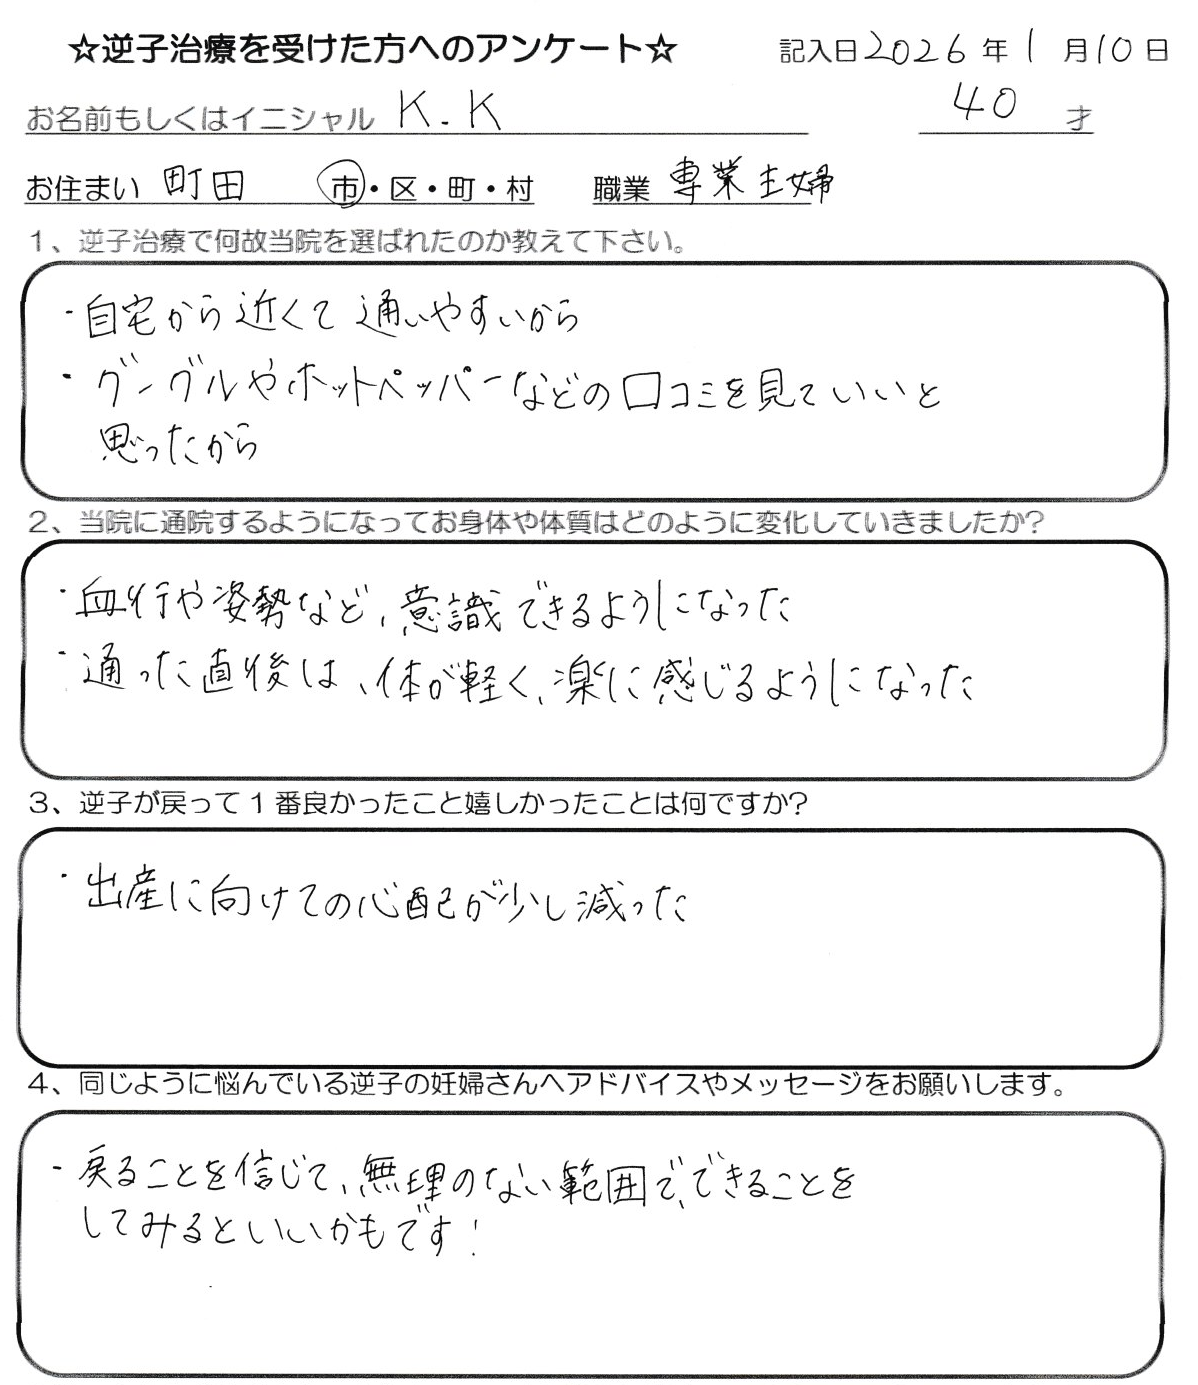 ☆逆子治療を受けた方へのアンケート☆ 記入日2026年1月10日
お名前もしくはイニシャル K.K 40才
お住まい 町田 市・区・町・村 職業 専業主婦
1、逆子治療で何故当院を選ばれたのか教えて下さい。
・自宅から近くて通いやすいから
・グーグルやホットペッパーなどの口コミを見ていいと
思ったから
2、当院に通院するようになってお身体や体質はどのように変化していきましたか?
・血行や姿勢など、意識できるようになった
・通った直後は、体が軽く、楽に感じるようになった
3、逆子が戻って1番良かったこと嬉しかったことは何ですか?
・出産に向けての心配が少し減った
4、同じように悩んでいる逆子の妊婦さんへアドバイスやメッセージをお願いします。
・戻ることを信じて、無理のない範囲で、できることを
してみるといいかもです!